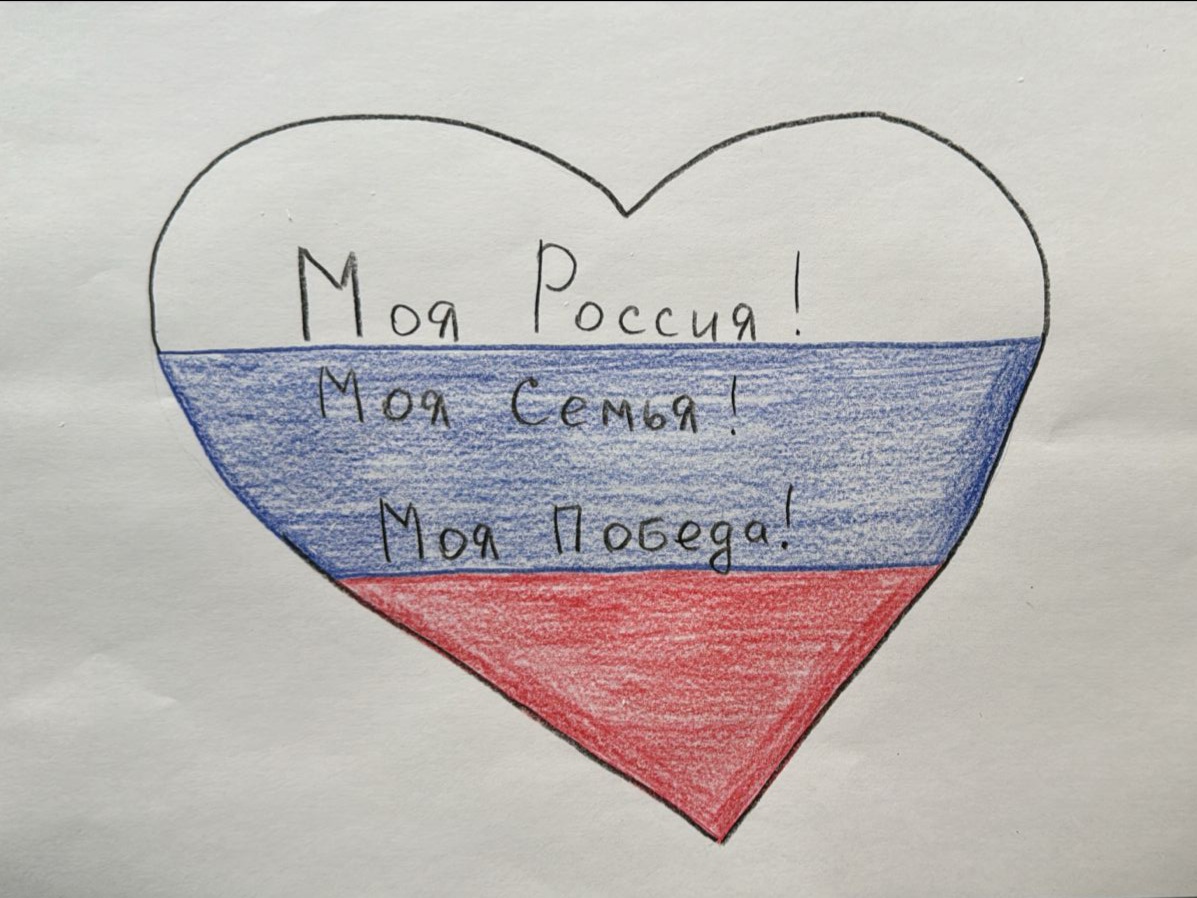 Моя Россия!
Моя Семья!
Моя Победа!